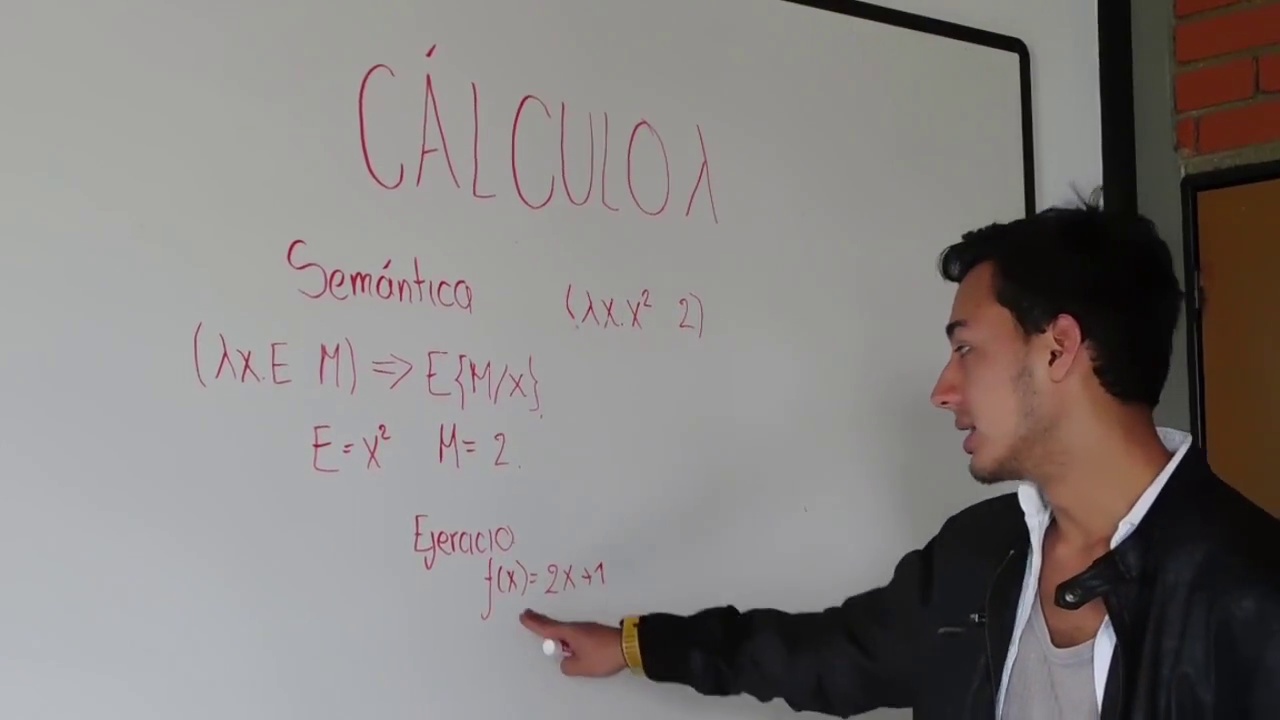 CÁLCULO λ
Semántica
(λx.x² 2)
(λx.E M) => E{M/x}
E=x² M= 2.
Ejercicio
f(x)= 2x+1